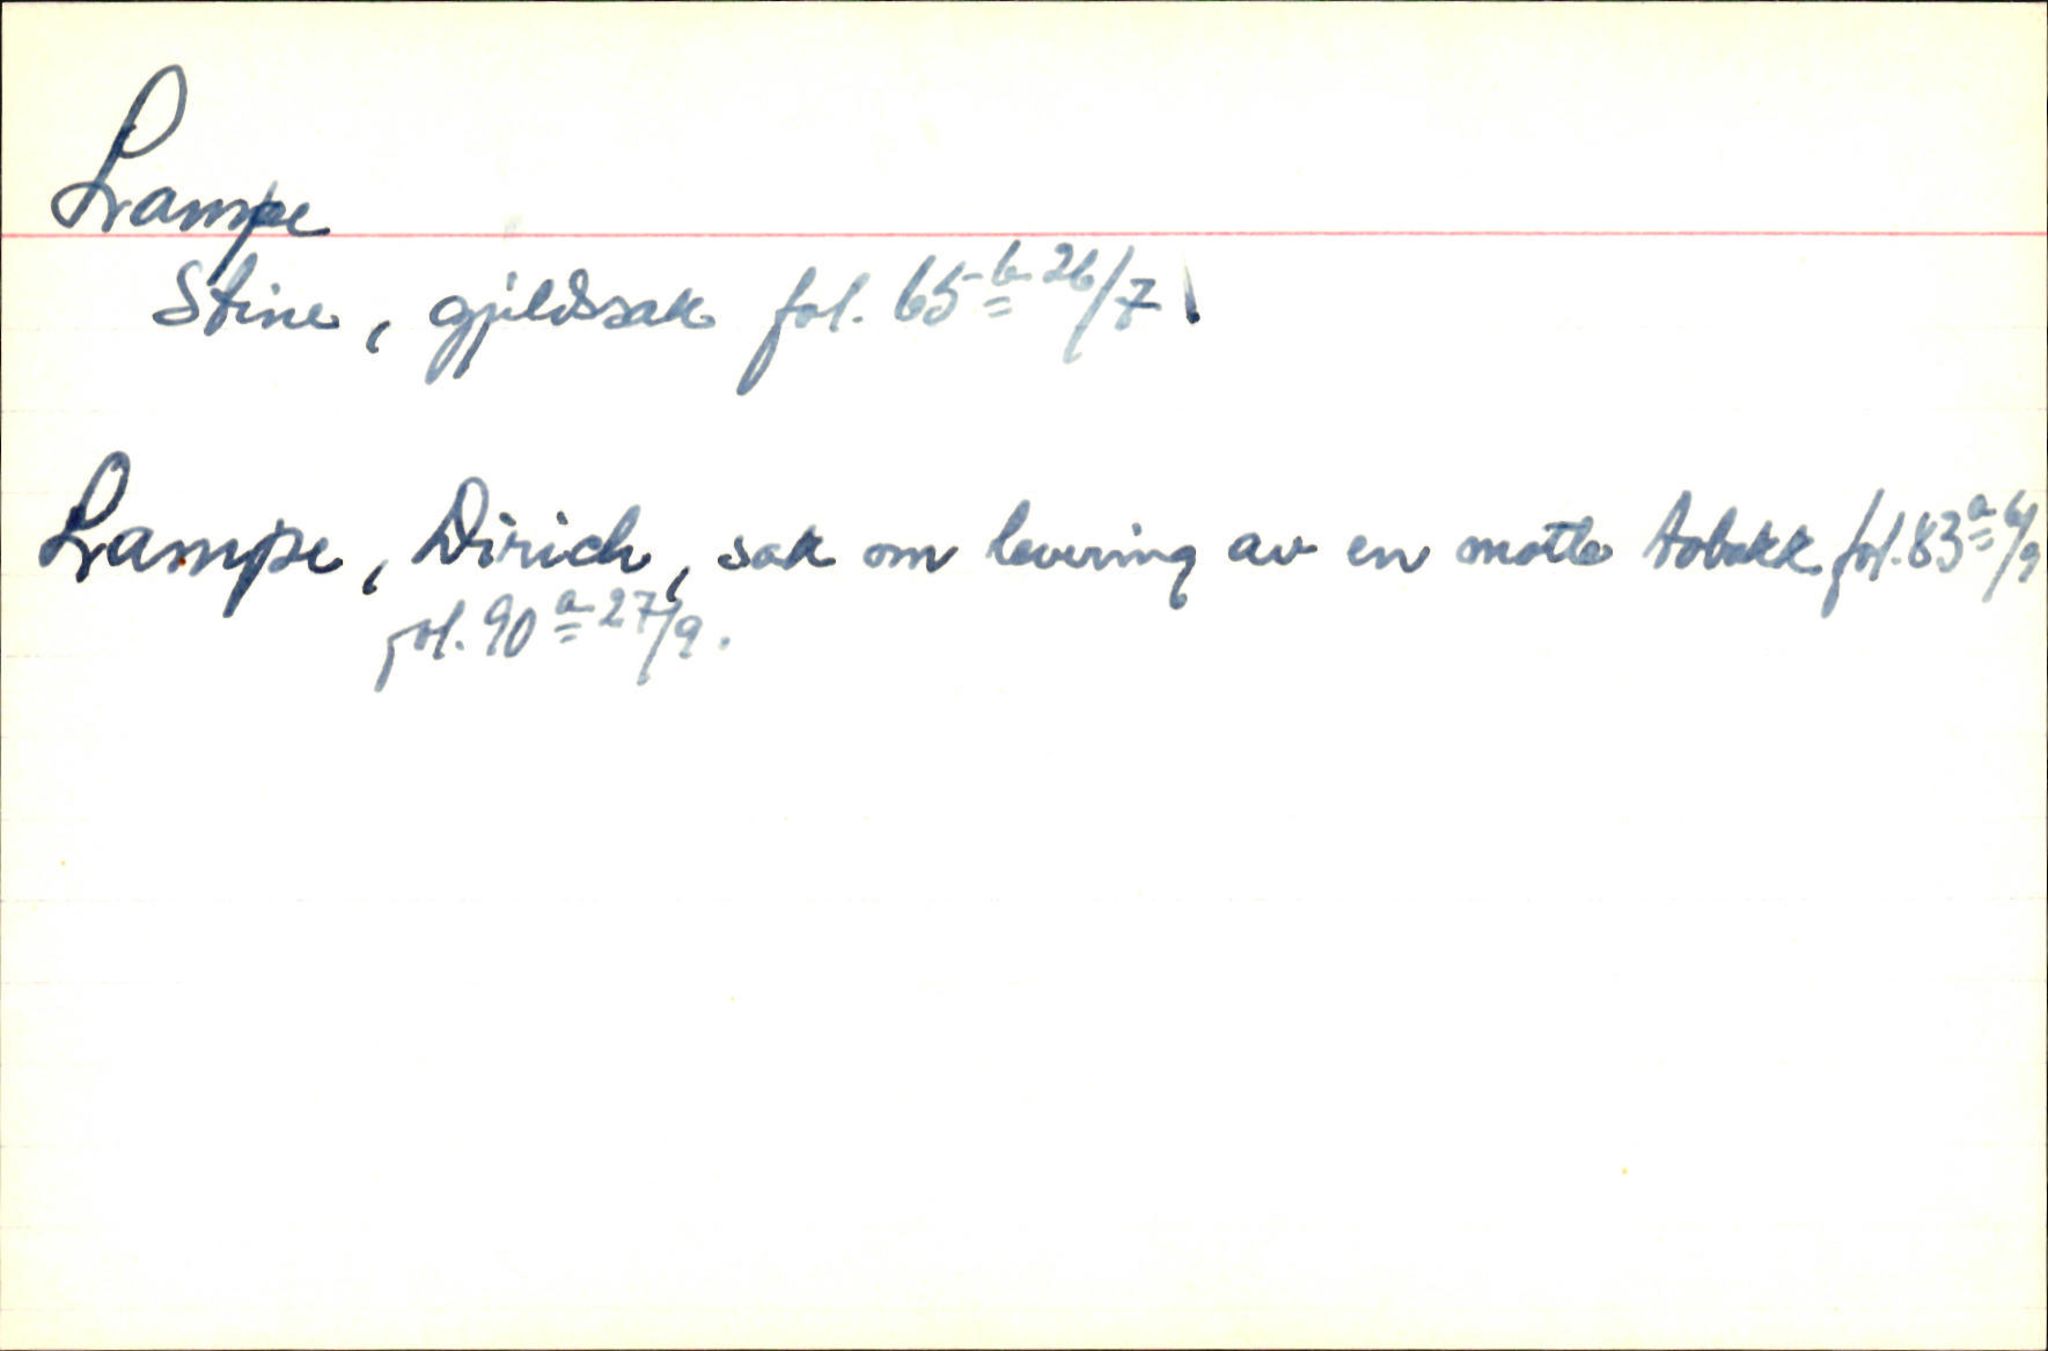 Lampe
Stine, gjeldssak fol. 65 b 26/7
Lampe, Dirich, sak om levering av en motte tobakk fol. 83 a 6/9
fol. 90 a 27/9.